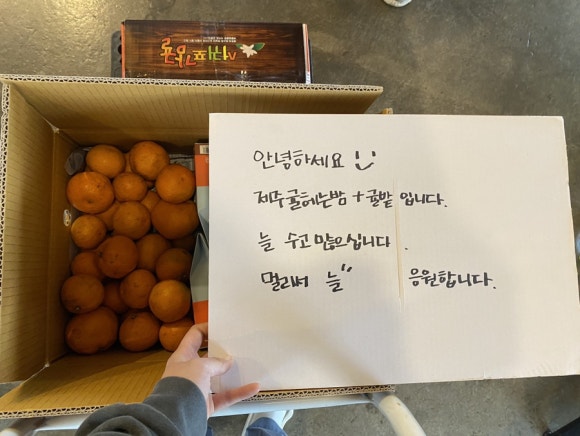 서귀포가모롱
안녕하세요
제주귤헤는밤 + 귤밭 입니다.
늘 수고 많으십니다.
멀리서 늘" 응원합니다.